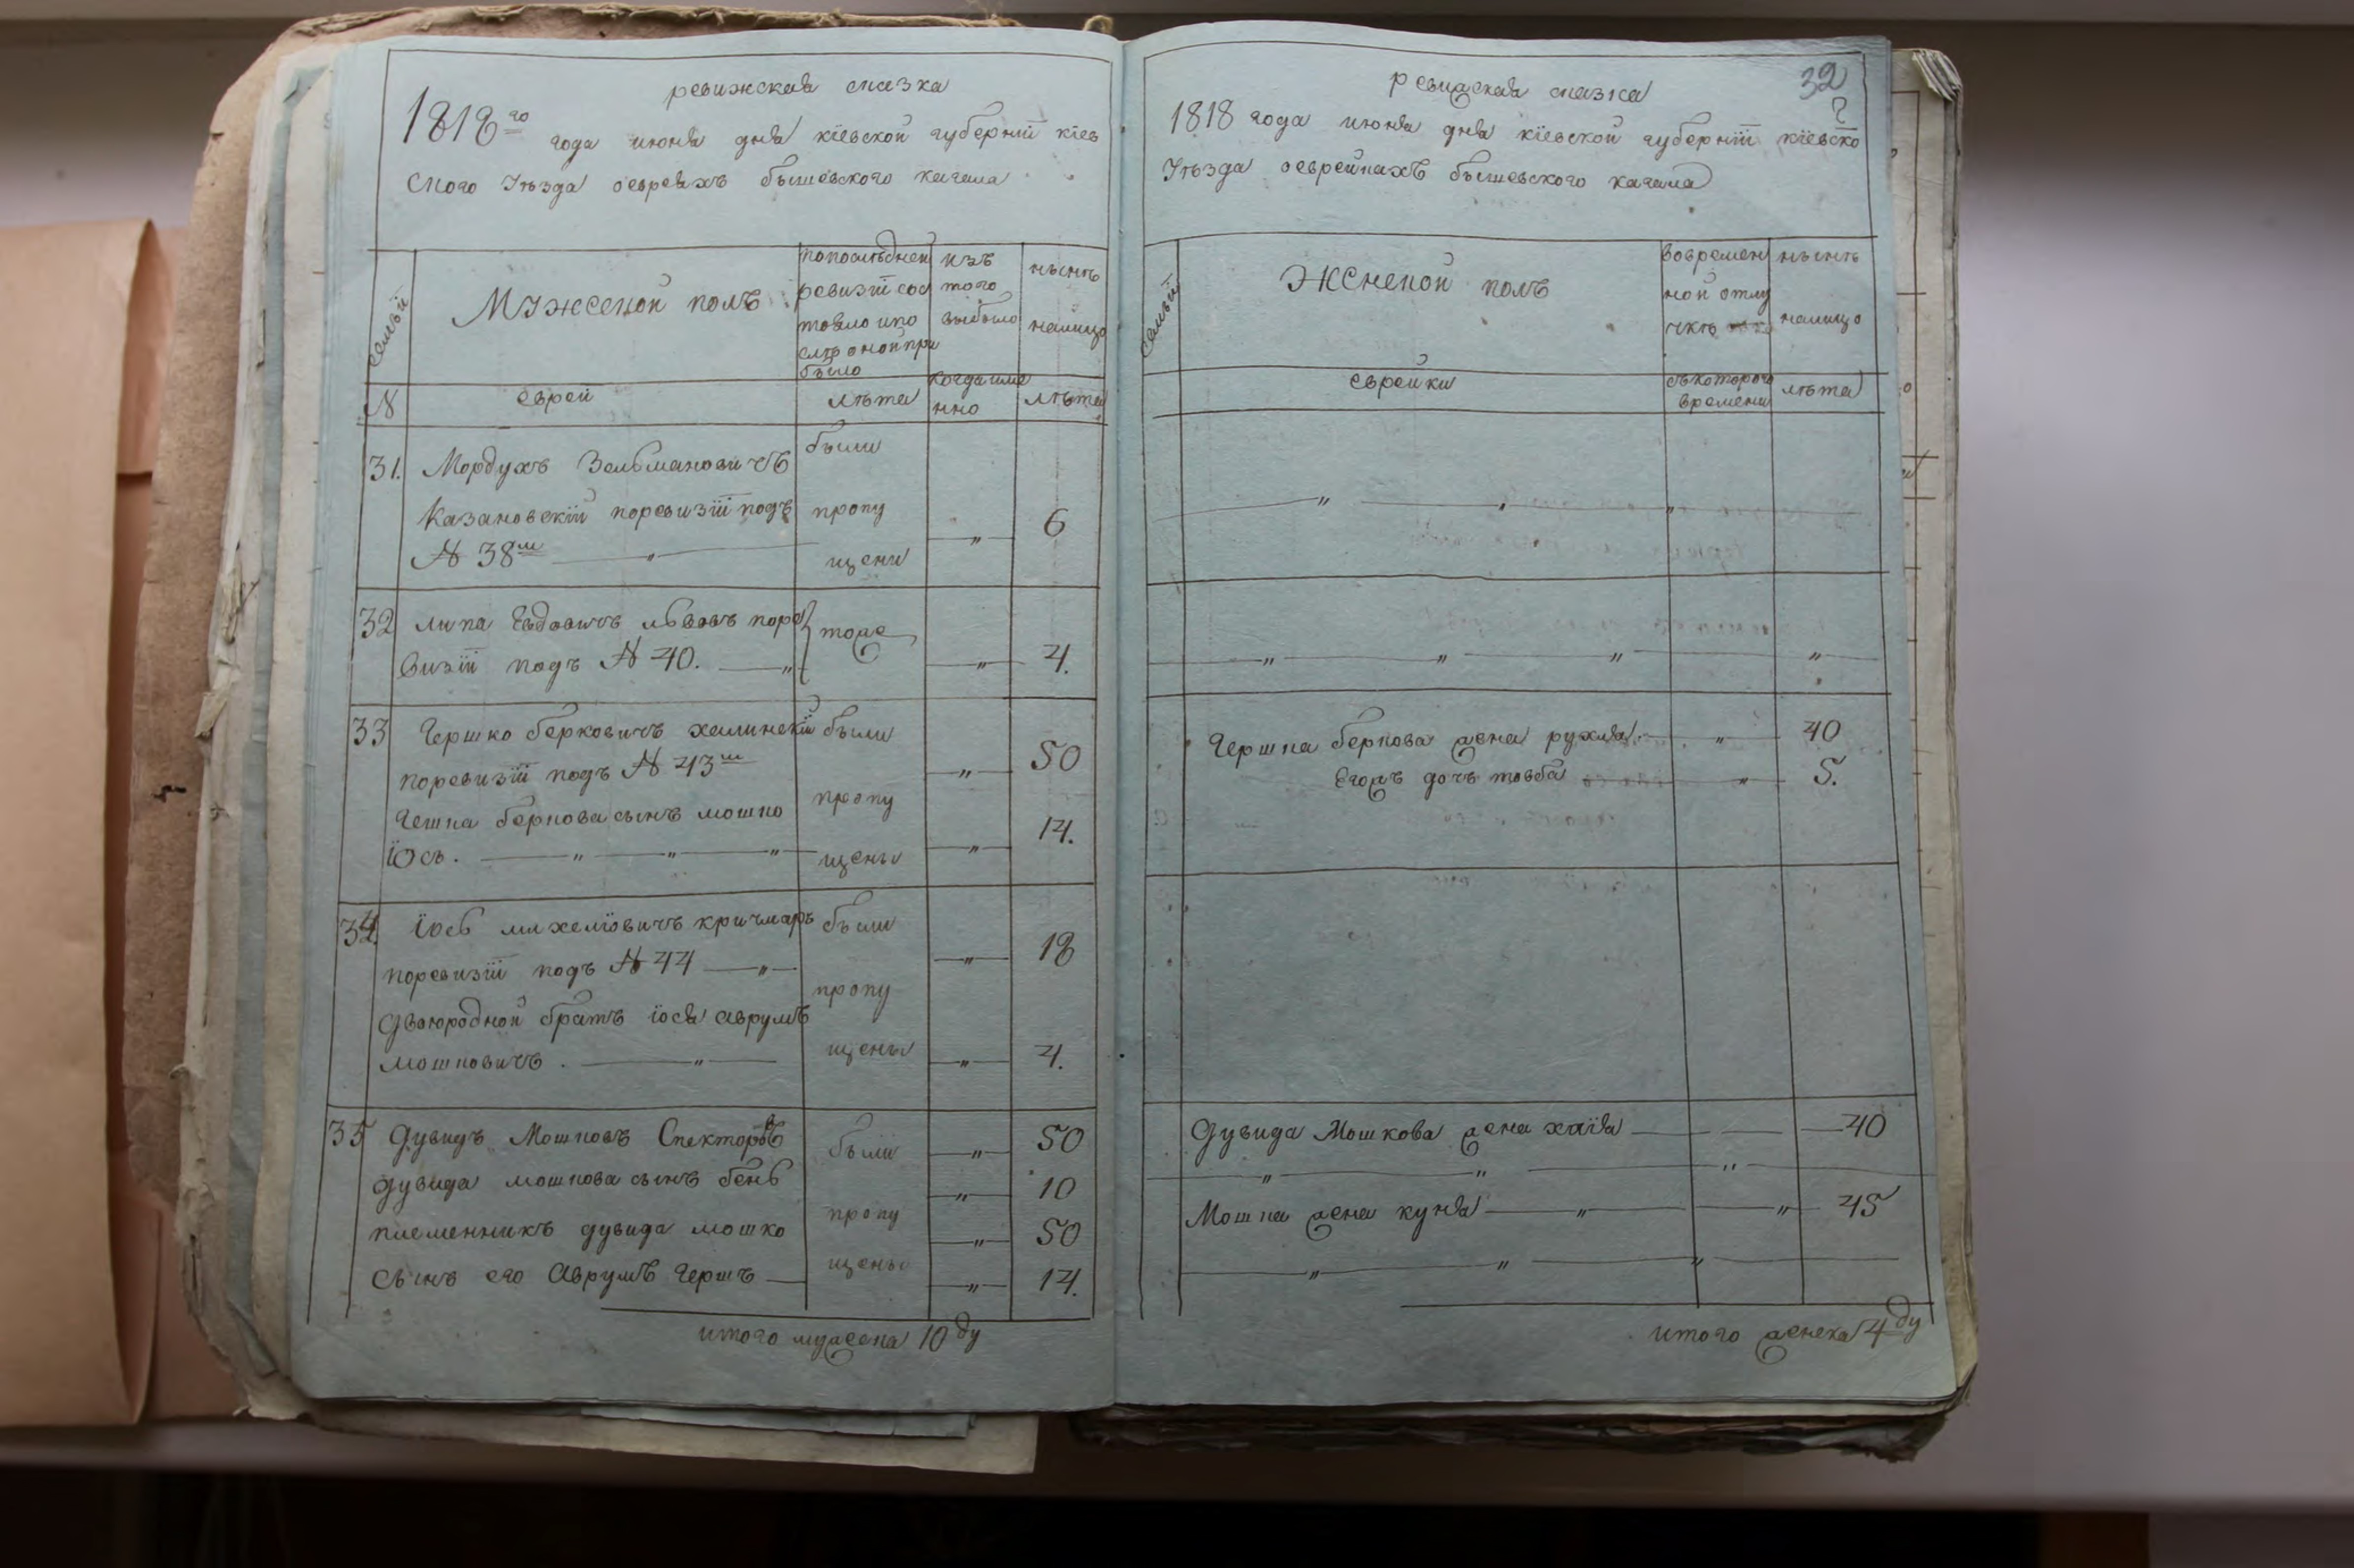 ревижская сказка
1818го года июня дня кіевской губерніи кіев
ского уезда оевреяхъ бышевского кагала
семьи
Мужеской полъ
попоследней
ревизіи сос
тояло ипо
сле оной при
было
изъ
того
выбыло
ныне
налицо
N
еврей
лета
когда име
нно
лета
31. Мордухъ Зельмановичъ были
Казановскій поревизіи подъ пропу
N 38м щены 6
32 липа Евдовичъ львовъ поре тоже
визіи подъ N 40. 4.
33 Гершко берковичъ халинскій были
поревизіи подъ N 43м 50
Гешка беркова сынъ мошко пропу
іось. щены 14.
34. іось михелiовичъ кричмаръ были
поревизіи подъ N 44 18
пропу
двоюродной братъ іося аврумъ
мошковичъ. щены 4.
35 Дувидъ Мошковъ Спекторовъ были 50
дувида мошкова сынъ бень 10
племенникъ дувида мошко пропу 50
сынъ его Аврумъ Гершъ щены 14.
итого мужеска 10 ду
32
ревижская сказка
1818 года июня дня кіевской губерніи кіевско
уезда оеврейкахъ бышевского кагала
семьи
Женской полъ
вовремен
ной отлу
чке
ныне
налицо
еврейки
съкоторого
времени
лета
Гершка беркова жена рухля 40
Егожъ дочъ товба 5.
Дувида Мошкова жена хаія 40
Мошка жена куня 45
итого женска 4 ду